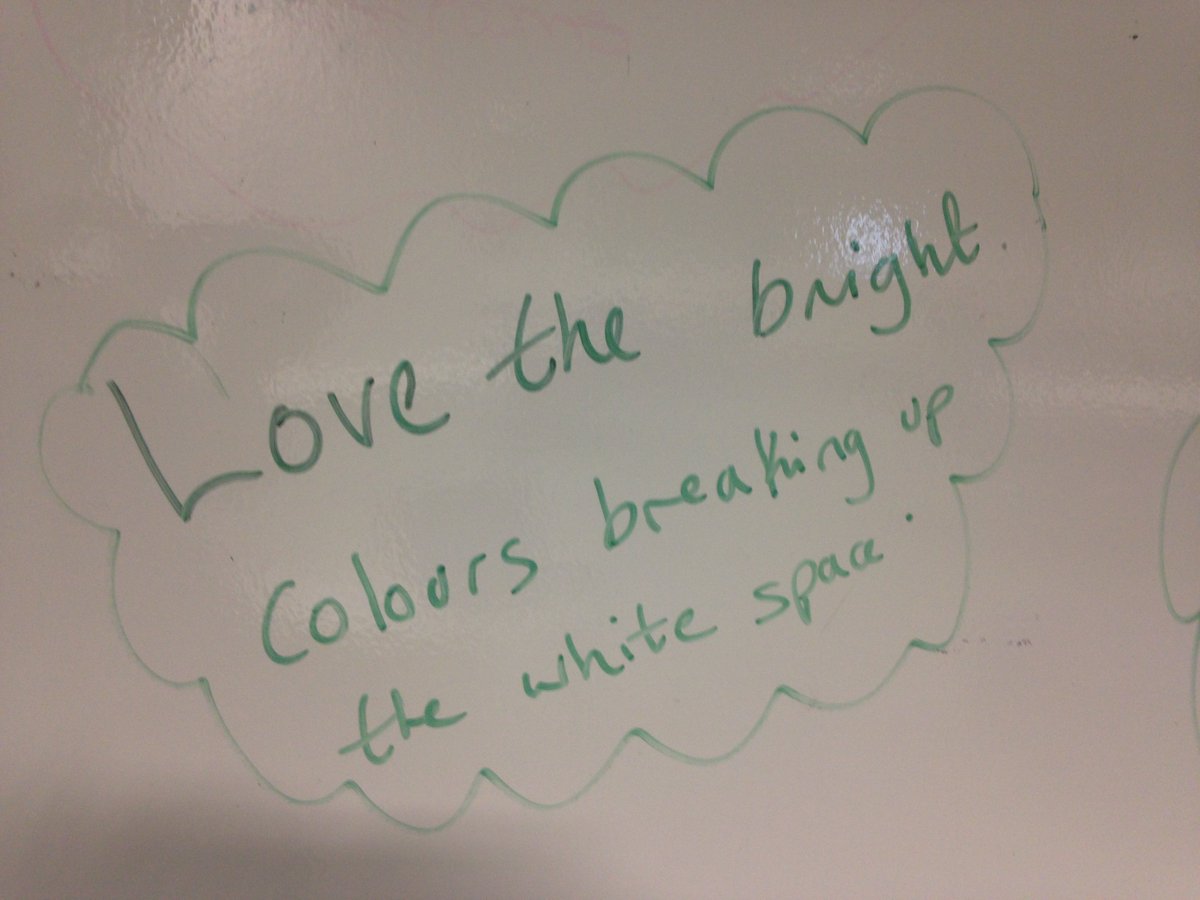 Love the bright.
Colours breaking up
the white space.